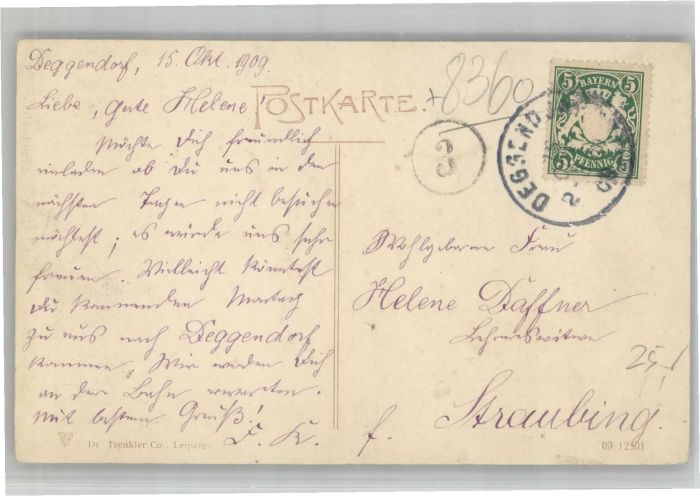 Deggendorf, 15. Okt. 1909.
Liebe, gute Helene!
Möchte Dich freundlich
einladen ob Du uns in den
nächsten Tagen nicht besuchen
möchtest; es würde uns sehr
freuen. Vielleicht könntest
Du kommenden Montag
zu uns nach Deggendorf
kommen. Wir werden Dich
an der Bahn erwarten.
Mit besten Gruß!
F. K.
POSTKARTE.
+8360
3
BAYERN
5 5
5 PFENNIG 5
DEGGENDORF
Wohlgeborne Frau
Helene Daffner
Lehrerswitwe
25,-
f. Straubing.
Dr Trenkler Co., Leipzig.
09 12501